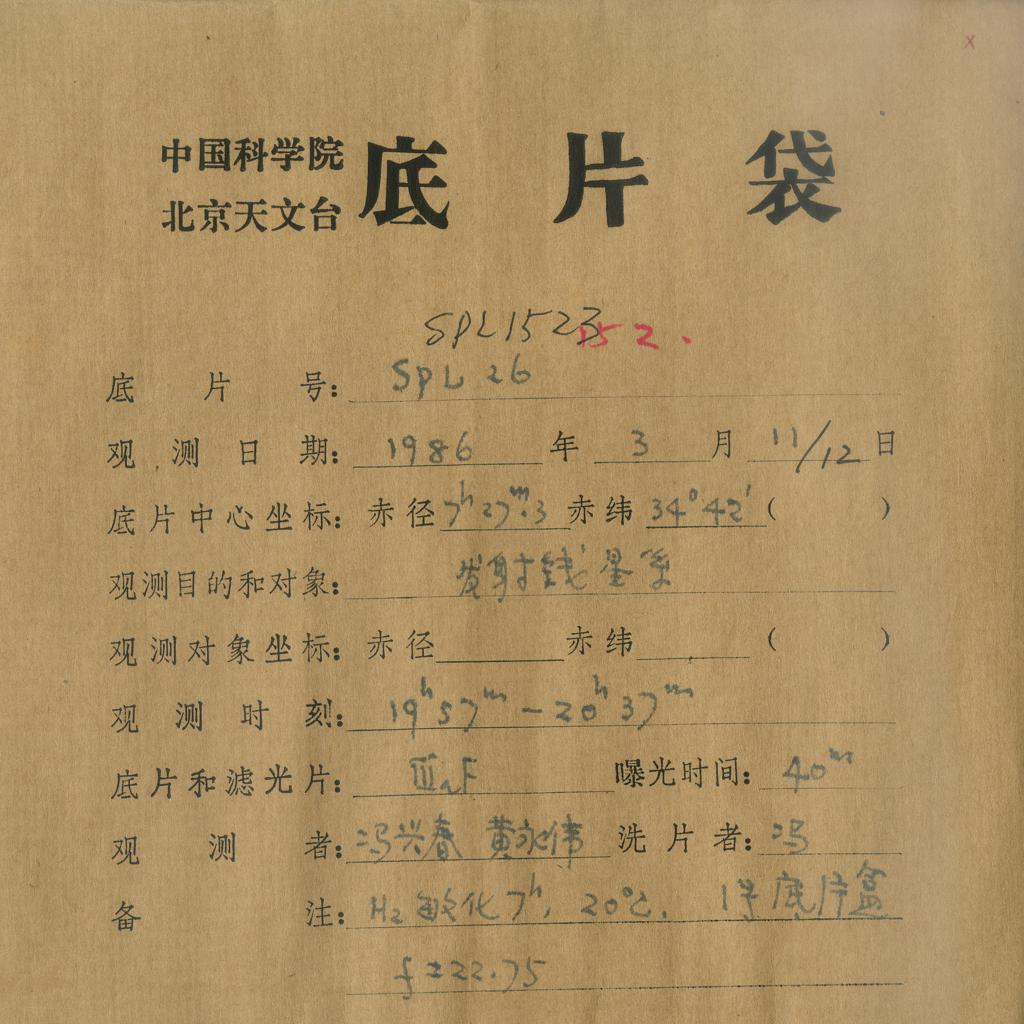 x
中国科学院
北京天文台
底片袋
SPL1523 152.
底片号: SPL 26
观测日期: 1986 年 3 月 11/12 日
底片中心坐标: 赤径 7h27m.3 赤纬 34°42' ( )
观测目的和对象: 发射线星系
观测对象坐标: 赤径 赤纬 ( )
观测时刻: 19h57m－20h37m
底片和滤光片: ⅢaF 曝光时间: 40m
观测者: 冯兴春 黄永伟 洗片者: 冯
备注: H2 敏化7h, 20℃. 1号底片盒
f=22.75